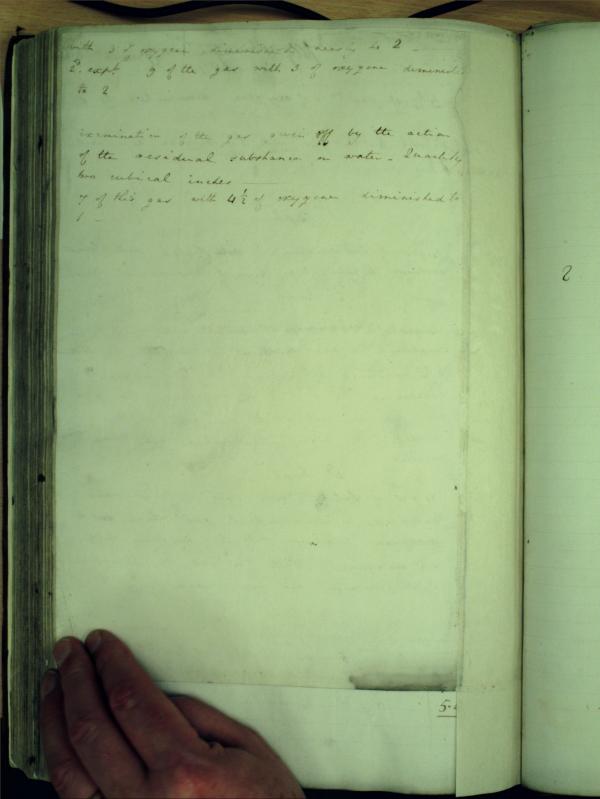 with 3 of oxygen diminished nearly to 2 -
2d. expt. 9 of the gas with 3 of oxygene diminished
to 2
Examination of the gas given off by the action
of the residual substance on water - Quantity
two cubical inches
7 of this gas with 4 1/2 of oxygene diminished to
1 -
2